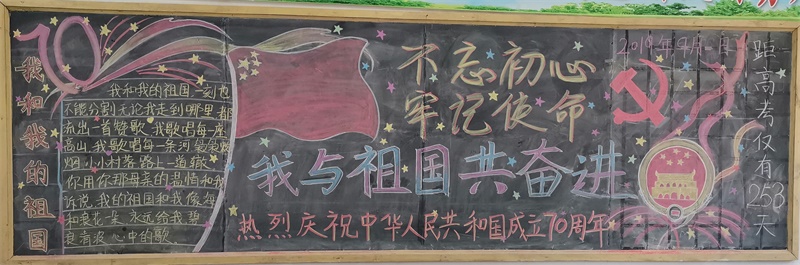 70
我和我的祖国
我和我的祖国一刻也
不能分割无论我走到哪里都
流出一首赞歌我歌唱每一座
高山我歌唱每一条河袅袅炊
烟小小村落路上一道辙
你用你那母亲的温情和我
诉说我的祖国和我像海
和浪花一朵
永远给我碧
浪清波心中的歌
不忘初心
牢记使命
我与祖国共奋进
热烈庆祝中华人民共和国成立70周年
2019年9月 日
距高考仅有253天